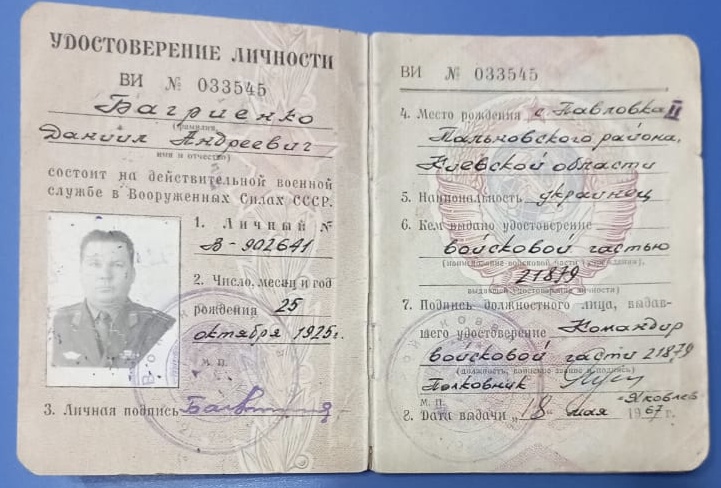 УДОСТОВЕРЕНИЕ ЛИЧНОСТИ
ВИ № 033545
Багриенко
(фамилия,
Даниил Андреевич
имя и отчество)
состоит на действительной военной
службе в Вооруженных Силах СССР.
1. Личный №
В-902641
2. Число, месяц и год
рождения 25
октября 1925г.
М. П.
3. Личная подпись
ВИ № 033545
4. Место рождения с Павловка II
Тальновского района,
Киевской области
5. Национальность украинец
6. Кем выдано удостоверение
войсковой частью
(наименование войсковой части (учреждения),
21879
выдавшей удостоверение личности)
7. Подпись должностного лица, выдав-
шего удостоверение Командир
войсковой части 21879
(должность, воинское звание и подпись)
Полковник
М. П. Яковлев
8. Дата выдачи „18" мая 1967 г.